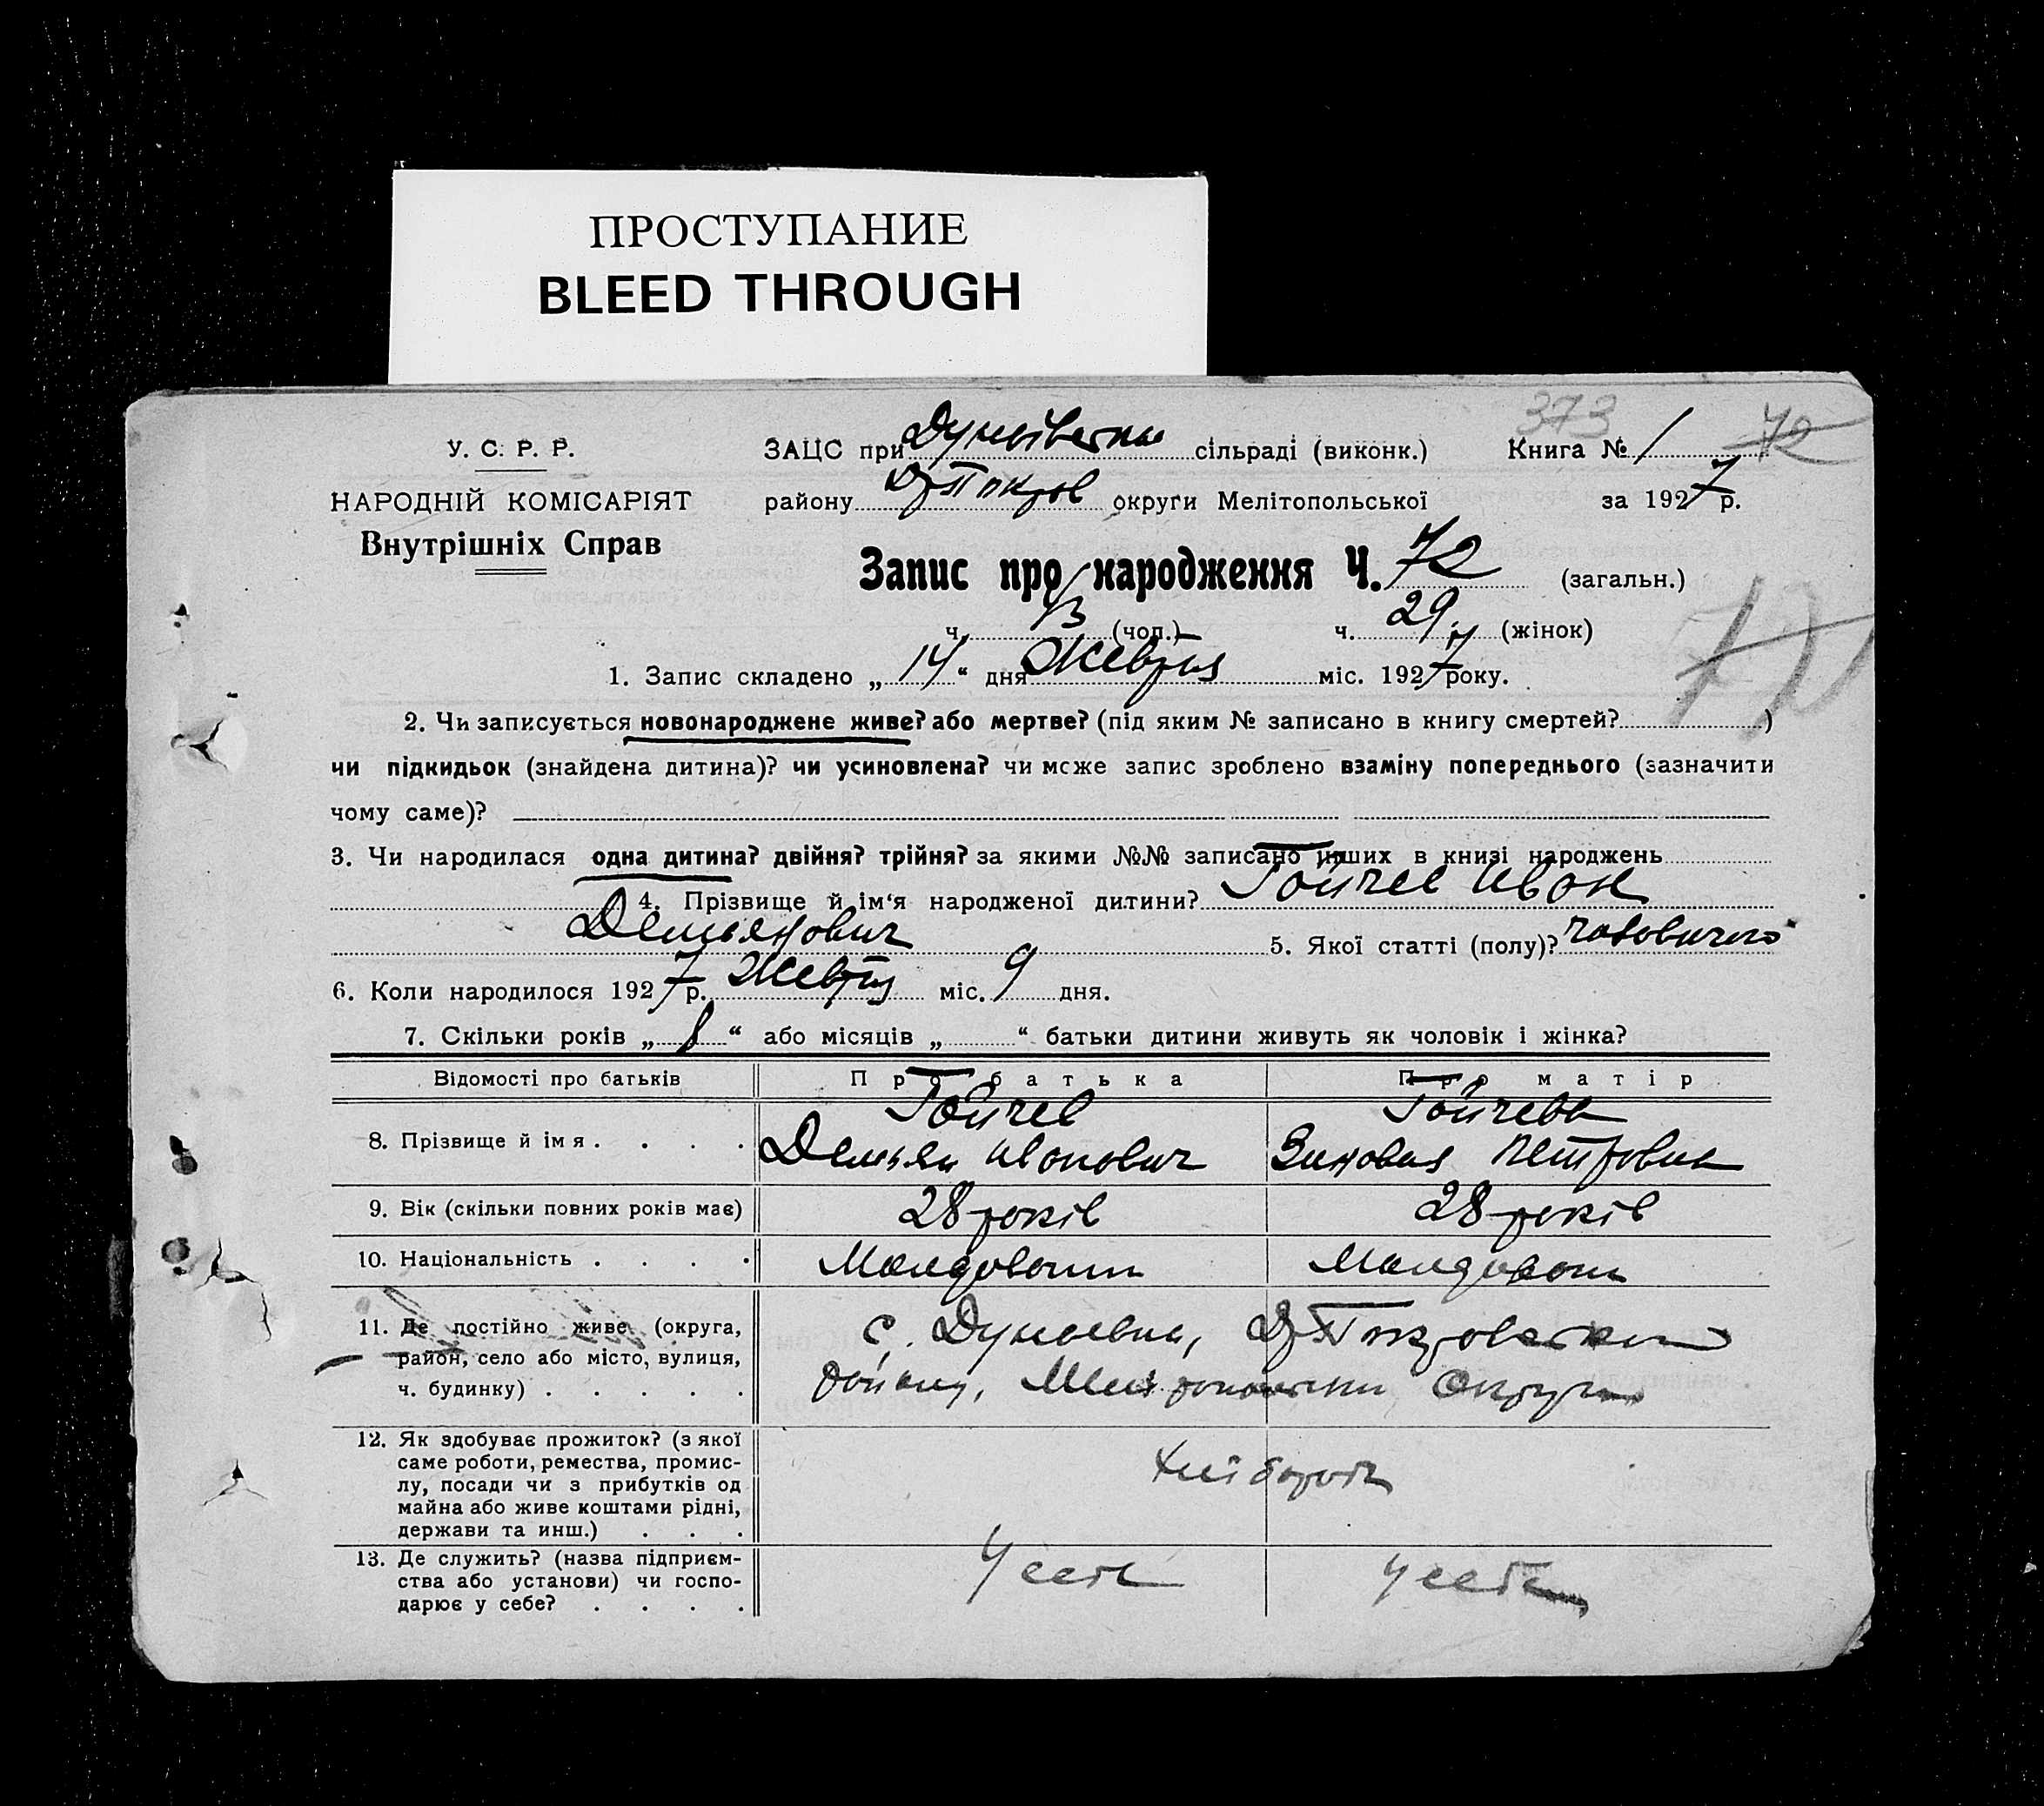 ПРОСТУПАНИЕ
BLEED THROUGH
373
72
У. С. Р. Р. ЗАЦС при сільраді (виконк.) Книга № 1
НАРОДНІЙ КОМІСАРІЯТ району округи Мелітопольської за 1927 р.
Внутрішніх Справ
Запис про народження Ч. 72 (загальн.)
ч. (чол.) ч. 29 (жінок)
72
1. Запис складено „ 14 “ дня Жевтня міс. 1927 року.
2. Чи записується новонароджене живе? або мертве? (під яким № записано в книгу смертей? )
чи підкидьок (знайдена дитина)? чи усиновлена? чи може запис зроблено взаміну попереднього (зазначити
чому саме)?
3. Чи народилася одна дитина? двійня? трійня? за якими №№ записано инших в книзі народжень
4. Прізвище й ім‘я народженої дитини? Гойчев Иван
Демьянович 5. Якої статті (полу)? чоловичого
6. Коли народилося 1927 р. Жевтня міс. 9 дня.
7. Скільки років „ 8 “ або місяців „ “ батьки дитини живуть як чоловік і жінка?
Відомості про батьків Про батька Про матір
Гойчев Гойчева
8. Прізвище й імя . . . . Демьян Иванович Зиновия Петровна
9. Вік (скільки повних років має) 28 років 28 років
10. Національність . . . . Молдован Молдован
11. Де постійно живе (округа, с.
район, село або місто, вулиця,
ч. будинку) . . . . . Округи
12. Як здобуває прожиток? (з якої
саме роботи, ремества, промис- Хлібороб
лу, посади чи з прибутків од
майна або живе коштами рідні,
держави та инш.) . . .
13. Де служить? (назва підприєм- У себе У себе
ства або установи) чи госпо-
дарює у себе? . . . .